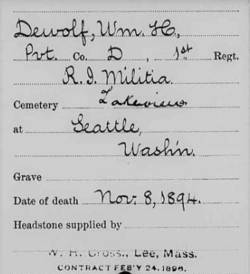 Dewolf, Wm. H.,
Pvt. Co. D, 1st Regt.
R. I. Militia.
Cemetery Lakeview
at Seattle,
Washn.
Grave
Date of death Nov. 8, 1894.
Headstone supplied by
W. H. Gross., Lee, Mass.
CONTRACT FEB'Y 24, 1896.